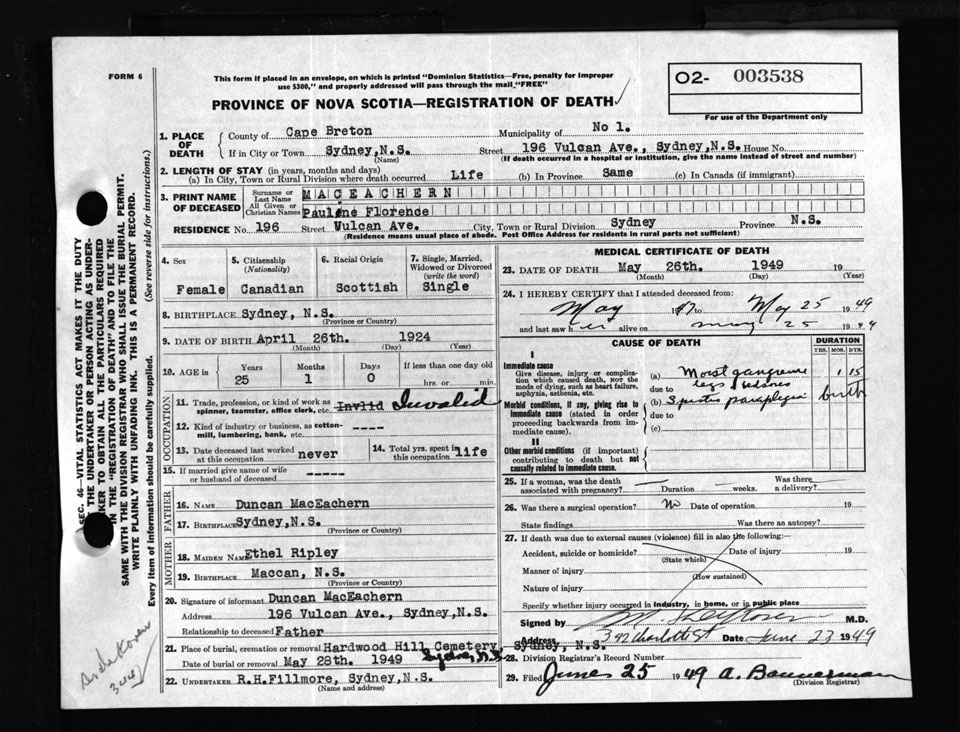 FORM 6
This form if placed in an envelope, on which is printed "Dominion Statistics—Free, penalty for improper
use $300," and properly addressed will pass through the mail "FREE"
O2- 003538
For use of the Department only
PROVINCE OF NOVA SCOTIA—REGISTRATION OF DEATH
1. PLACE OF DEATH
County of Cape Breton Municipality of No 1.
If in City or Town Sydney,N.S. Street 196 Vulcan Ave., Sydney,N.S. House No.
(Name) (If death occurred in a hospital or institution, give the name instead of street and number)
2. LENGTH OF STAY (in years, months and days)
(a) In City, Town or Rural Division where death occurred Life (b) In Province Same (c) In Canada (if immigrant)
3. PRINT NAME OF DECEASED
Surname or Last Name MACEACHERN
All Given or Christian Names Pauline Florence
RESIDENCE No. 196 Street Vulcan Ave. City, Town or Rural Division Sydney Province N.S.
(Residence means usual place of abode. Post Office Address for residents in rural parts not sufficient)
4. Sex
Female
5. Citizenship
(Nationality)
Canadian
6. Racial Origin
Scottish
7. Single, Married,
Widowed or Divorced
(write the word)
Single
8. BIRTHPLACE Sydney, N.S.
(Province or Country)
9. DATE OF BIRTH April 26th. 1924
(Month) (Day) (Year)
10. AGE in
Years Months Days If less than one day old
25 1 0 hrs. or min.
OCCUPATION
11. Trade, profession, or kind of work as
spinner, teamster, office clerk, etc. Invlid Invalid
12. Kind of industry or business, as cotton-
mill, lumbering, bank, etc. ----
13. Date deceased last worked
at this occupation never
14. Total yrs. spent in
this occupation life
15. If married give name of wife
or husband of deceased -----
FATHER
16. NAME Duncan MacEachern
17. BIRTHPLACE Sydney,N.S.
(Province or Country)
MOTHER
18. MAIDEN NAME Ethel Ripley
19. BIRTHPLACE Maccan, N.S.
(Province or Country)
20. Signature of informant Duncan MacEachern
Address 196 Vulcan Ave., Sydney,N.S.
Relationship to deceased Father
21. Place of burial, cremation or removal Hardwood Hill Cemetery, Sydney, N.S.
Date of burial or removal May 28th. 1949 Sydney, N.S.
22. UNDERTAKER R.H.Fillmore, Sydney,N.S.
(Name and address)
MEDICAL CERTIFICATE OF DEATH
23. DATE OF DEATH May 26th. 1949 19
(Month) (Day) (Year)
24. I HEREBY CERTIFY that I attended deceased from:
May 1947 to May 25 1949
and last saw her alive on May 25 1949
CAUSE OF DEATH
DURATION
YRS. MOS. DYS.
I
Immediate cause
Give disease, injury or complica-
tion which caused death, NOT the
mode of dying, such as heart failure,
asphyxia, asthenia, etc.
(a) Moist gangrene 1 15
due to legs
Morbid conditions, if any, giving rise to
immediate cause (stated in order
proceeding backwards from im-
mediate cause).
(b) paraplegia birth
due to
(c)
II
Other morbid conditions (if important)
contributing to death but not
causally related to immediate cause.
25. If a woman, was the death
associated with pregnancy? Duration weeks. Was there
a delivery?
26. Was there a surgical operation? No Date of operation 19
State findings Was there an autopsy?
27. If death was due to external causes (violence) fill in also the following:
Accident, suicide or homicide? Date of injury 19
(State which)
Manner of injury
(How sustained)
Nature of injury
Specify whether injury occurred in industry, in home, or in public place
Signed by M.D.
Address 392 Charlotte St Date June 23 1949
28. Division Registrar's Record Number
29. Filed June 25 1949 A. Bannerman
(Division Registrar)
SEC. 46—VITAL STATISTICS ACT MAKES IT THE DUTY
OF THE UNDERTAKER OR PERSON ACTING AS UNDER-
TAKER TO OBTAIN ALL THE PARTICULARS REQUIRED
IN THE "REGISTRATION OF DEATH" AND TO FILE THE
SAME WITH THE DIVISION REGISTRAR WHO SHALL ISSUE THE BURIAL PERMIT.
WRITE PLAINLY WITH UNFADING INK. THIS IS A PERMANENT RECORD.
Every item of information should be carefully supplied. (See reverse side for instructions.)